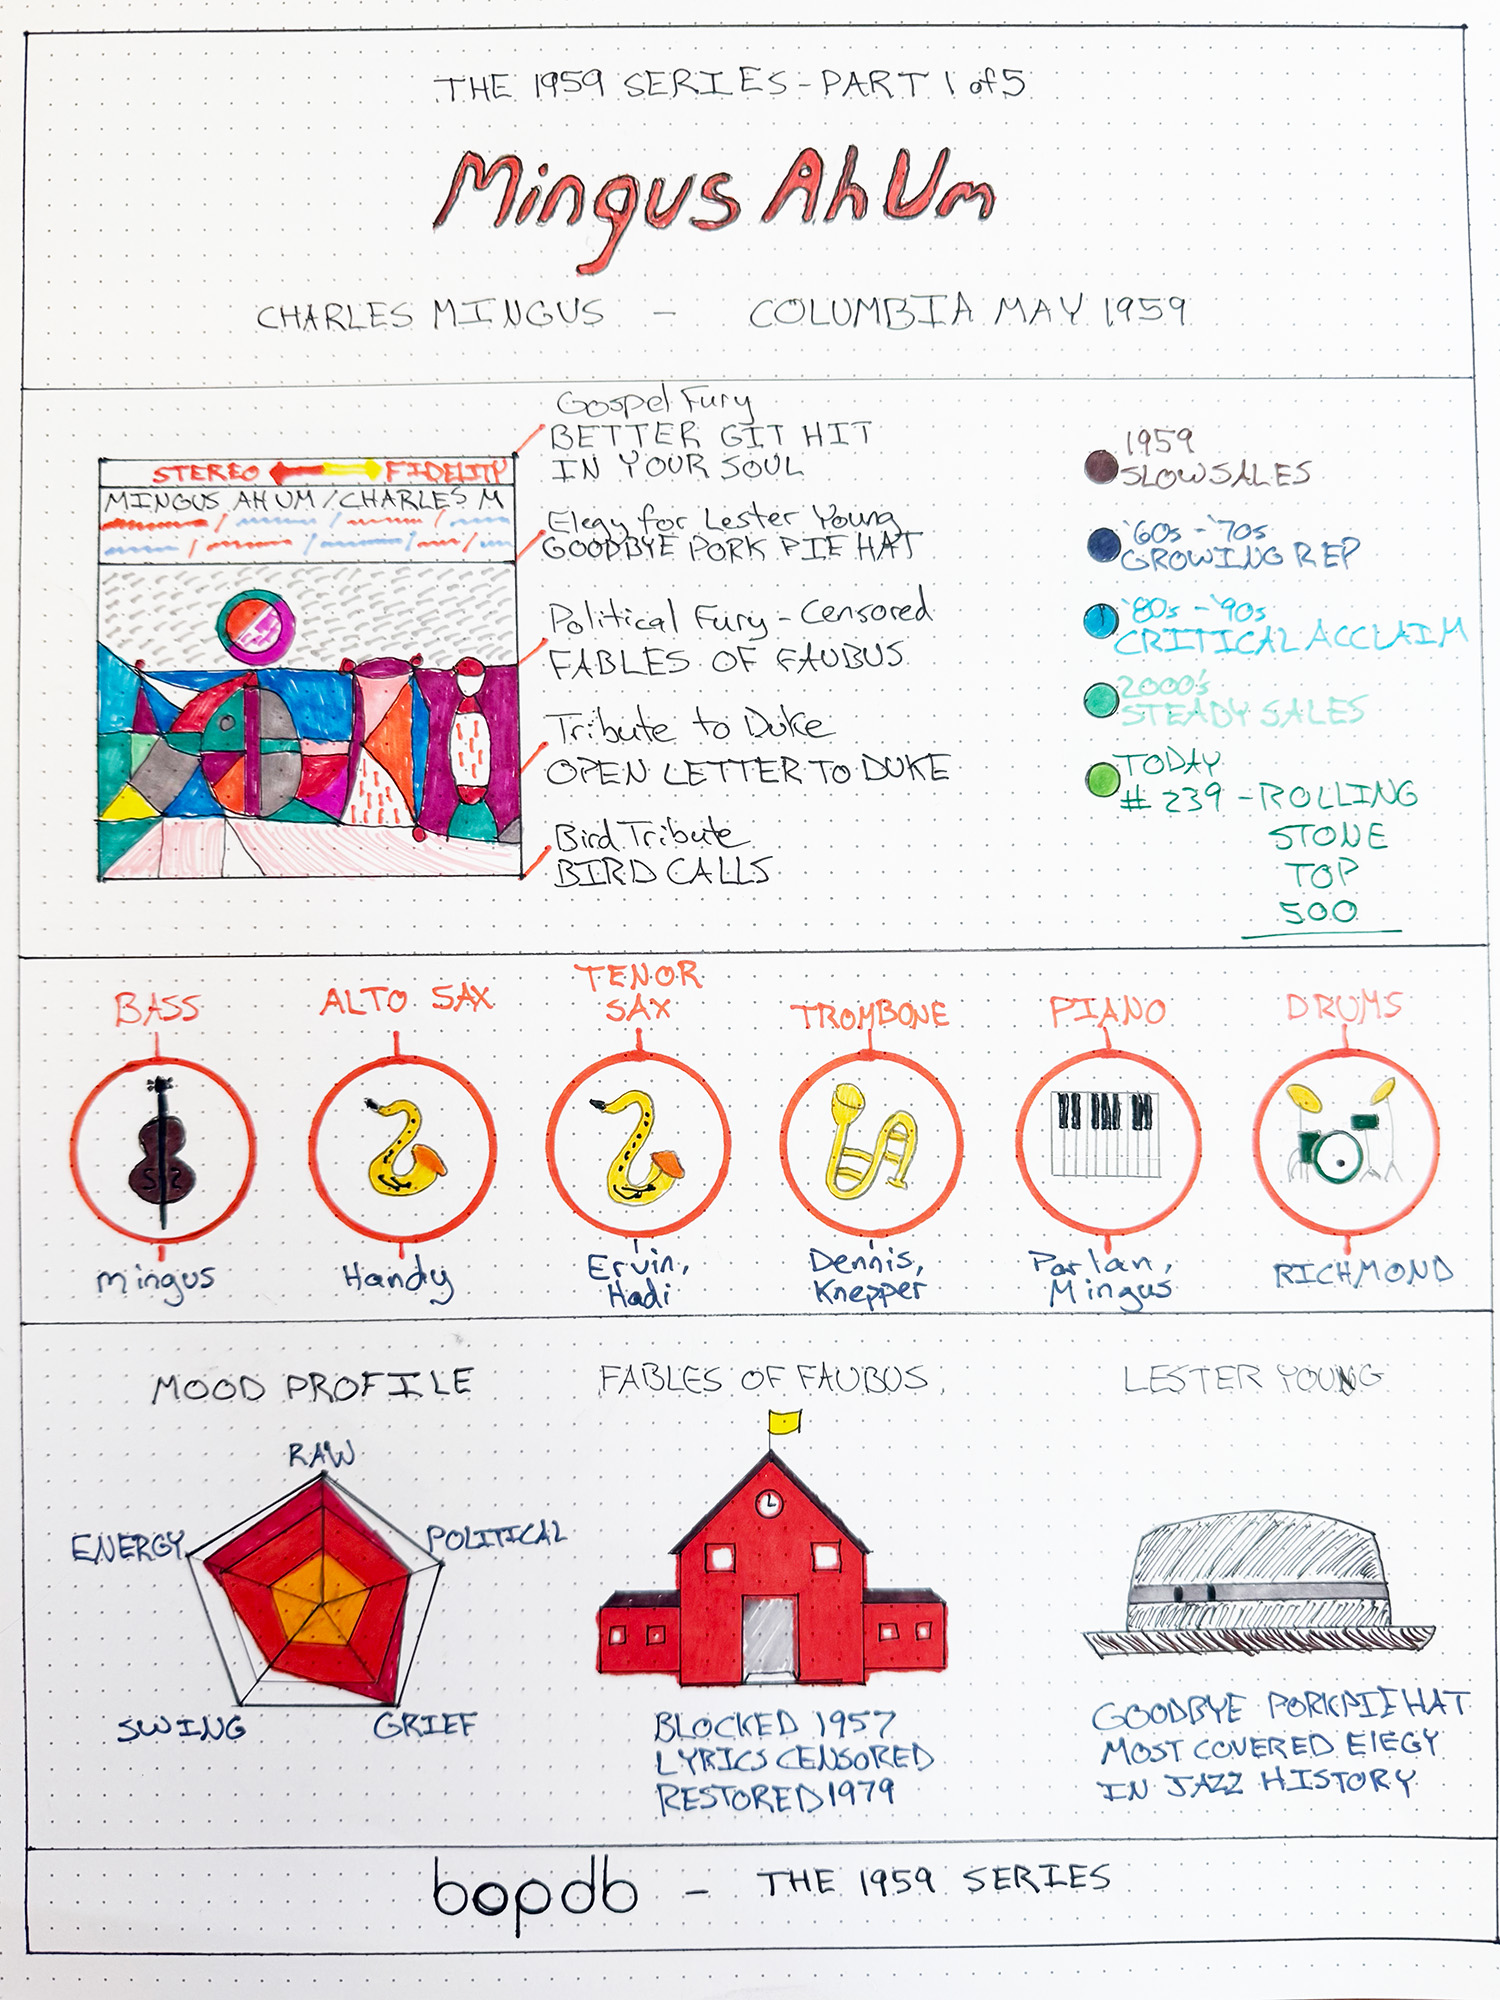 THE 1959 SERIES - PART 1 of 5
Mingus Ah Um
CHARLES MINGUS - COLUMBIA MAY 1959
STEREO FIDELITY
MINGUS AH UM / CHARLES M
Gospel Fury
BETTER GIT HIT
IN YOUR SOUL
Elegy for Lester Young
GOODBYE PORK PIE HAT
Political Fury - Censored
FABLES OF FAUBUS
Tribute to Duke
OPEN LETTER TO DUKE
Bird Tribute
BIRD CALLS
1959
SLOW SALES
'60s - '70s
GROWING REP
'80s - '90s
CRITICAL ACCLAIM
2000's
STEADY SALES
TODAY
# 239 - ROLLING
STONE
TOP
500
BASS
Mingus
ALTO SAX
Handy
TENOR
SAX
Ervin,
Hadi
TROMBONE
Dennis,
Knepper
PIANO
Parlan,
Mingus
DRUMS
RICHMOND
MOOD PROFILE
RAW
ENERGY
POLITICAL
SWING
GRIEF
FABLES OF FAUBUS
BLOCKED 1957
LYRICS CENSORED
RESTORED 1979
LESTER YOUNG
GOODBYE PORKPIE HAT
MOST COVERED ElEGY
IN JAZZ HISTORY
bopdb - THE 1959 SERIES